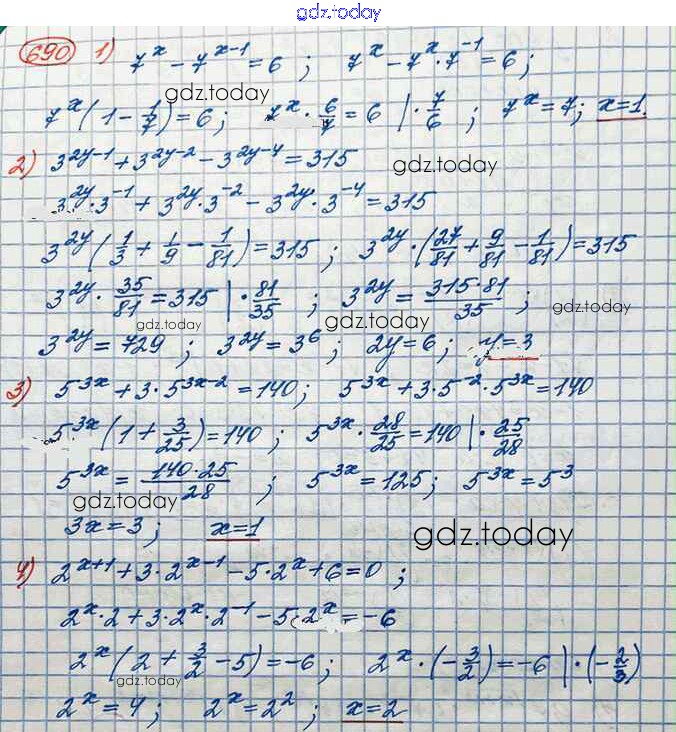 gdz.today
690 1) 7^x - 7^(x-1) = 6 ; 7^x - 7^x · 7^-1 = 6 ;
7^x (1 - 1/7) = 6 ; 7^x · 6/7 = 6 | · 7/6 ; 7^x = 7 ; x = 1.
gdz.today
2) 3^(2y-1) + 3^(2y-2) - 3^(2y-4) = 315
gdz.today
3^2y · 3^-1 + 3^2y · 3^-2 - 3^2y · 3^-4 = 315
3^2y (1/3 + 1/9 - 1/81) = 315 ; 3^2y · (27/81 + 9/81 - 1/81) = 315
3^2y · 35/81 = 315 | · 81/35 ; 3^2y = 315·81/35 ;
gdz.today
gdz.today
gdz.today
3^2y = 729 ; 3^2y = 3^6 ; 2y = 6 ; y = 3
3) 5^3x + 3 · 5^(3x-2) = 140 ; 5^3x + 3 · 5^-2 · 5^3x = 140
5^3x (1 + 3/25) = 140 ; 5^3x · 28/25 = 140 | · 25/28
5^3x = 140·25/28 ; 5^3x = 125 ; 5^3x = 5^3
gdz.today
3x = 3 ; x = 1
gdz.today
4) 2^(x+1) + 3 · 2^(x-1) - 5 · 2^x + 6 = 0 ;
2^x · 2 + 3 · 2^x · 2^-1 - 5 · 2^x = -6
2^x (2 + 3/2 - 5) = -6 ; 2^x · (-3/2) = -6 | · (-2/3)
gdz.today
2^x = 4 ; 2^x = 2^2 ; x = 2